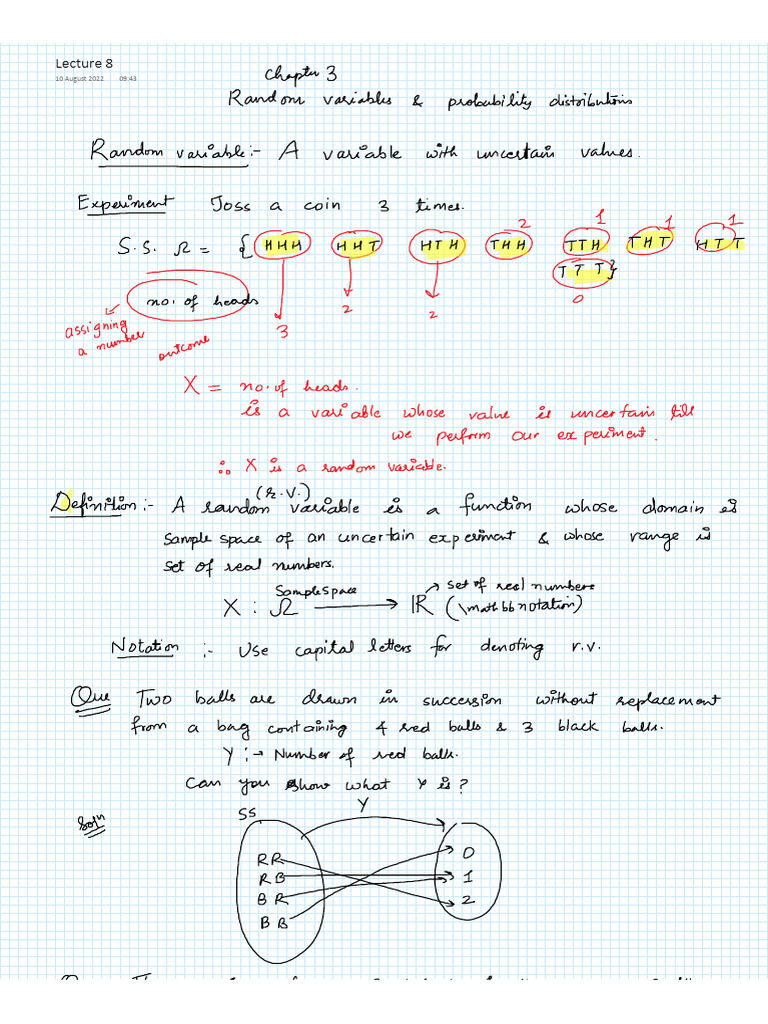 Lecture 8
10 August 2022 09:43
Chapter 3
Random variables & probability distributions
Random variable:- A variable with uncertain values.
Experiment Toss a coin 3 times.
2 1 1 1
S.S. Ω = { HHH HHT HTH THH TTH THT HTT
TTT}
no. of heads
0
2
2
3
assigning
a number
outcome
X = no. of heads.
is a variable whose value is uncertain till
we perform our experiment.
∴ X is a random variable.
(r.v.)
Definition:- A random variable is a function whose domain is
sample space of an uncertain experiment & whose range is
set of real numbers.
Sample space → set of real numbers
X : Ω → ℝ (\mathbb notation)
Notation :- Use capital letters for denoting r.v.
Que Two balls are drawn in succession without replacement
from a bag containing 4 red balls & 3 black balls.
Y :→ Number of red balls.
Can you show what Y is?
Soln
SS Y
RR 0
RB 1
BR 2
BB